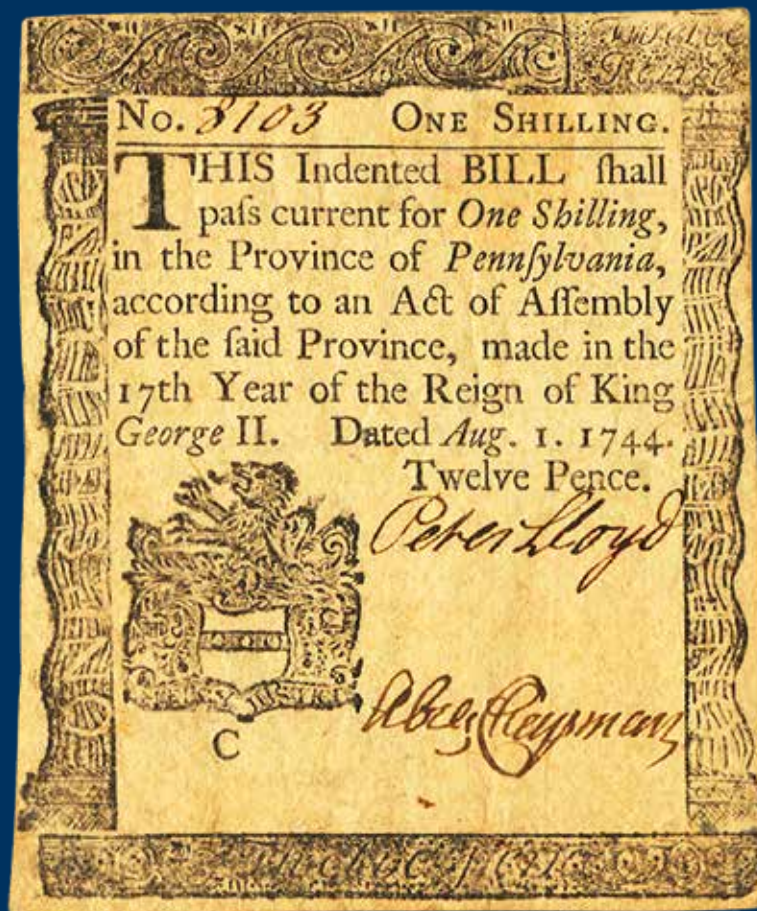 No. 8103 ONE SHILLING.
THIS Indented BILL ſhall
paſs current for One Shilling,
in the Province of Pennſylvania,
according to an Act of Aſſembly
of the ſaid Province, made in the
17th Year of the Reign of King
George II. Dated Aug. 1. 1744.
Twelve Pence.
Peter Lloyd
C